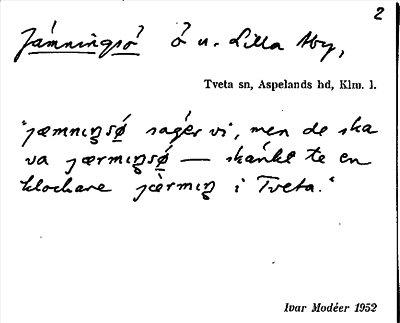 2
Jämningsö ö u. Lilla Aby,
Tveta sn, Aspelands hd, Klm. l.
"jæmnıŋsǿ sager vi, men de ska
va jærmıŋsǿ — skänkt te en
klockare jærmıŋ i Tveta."
Ivar Modéer 1952